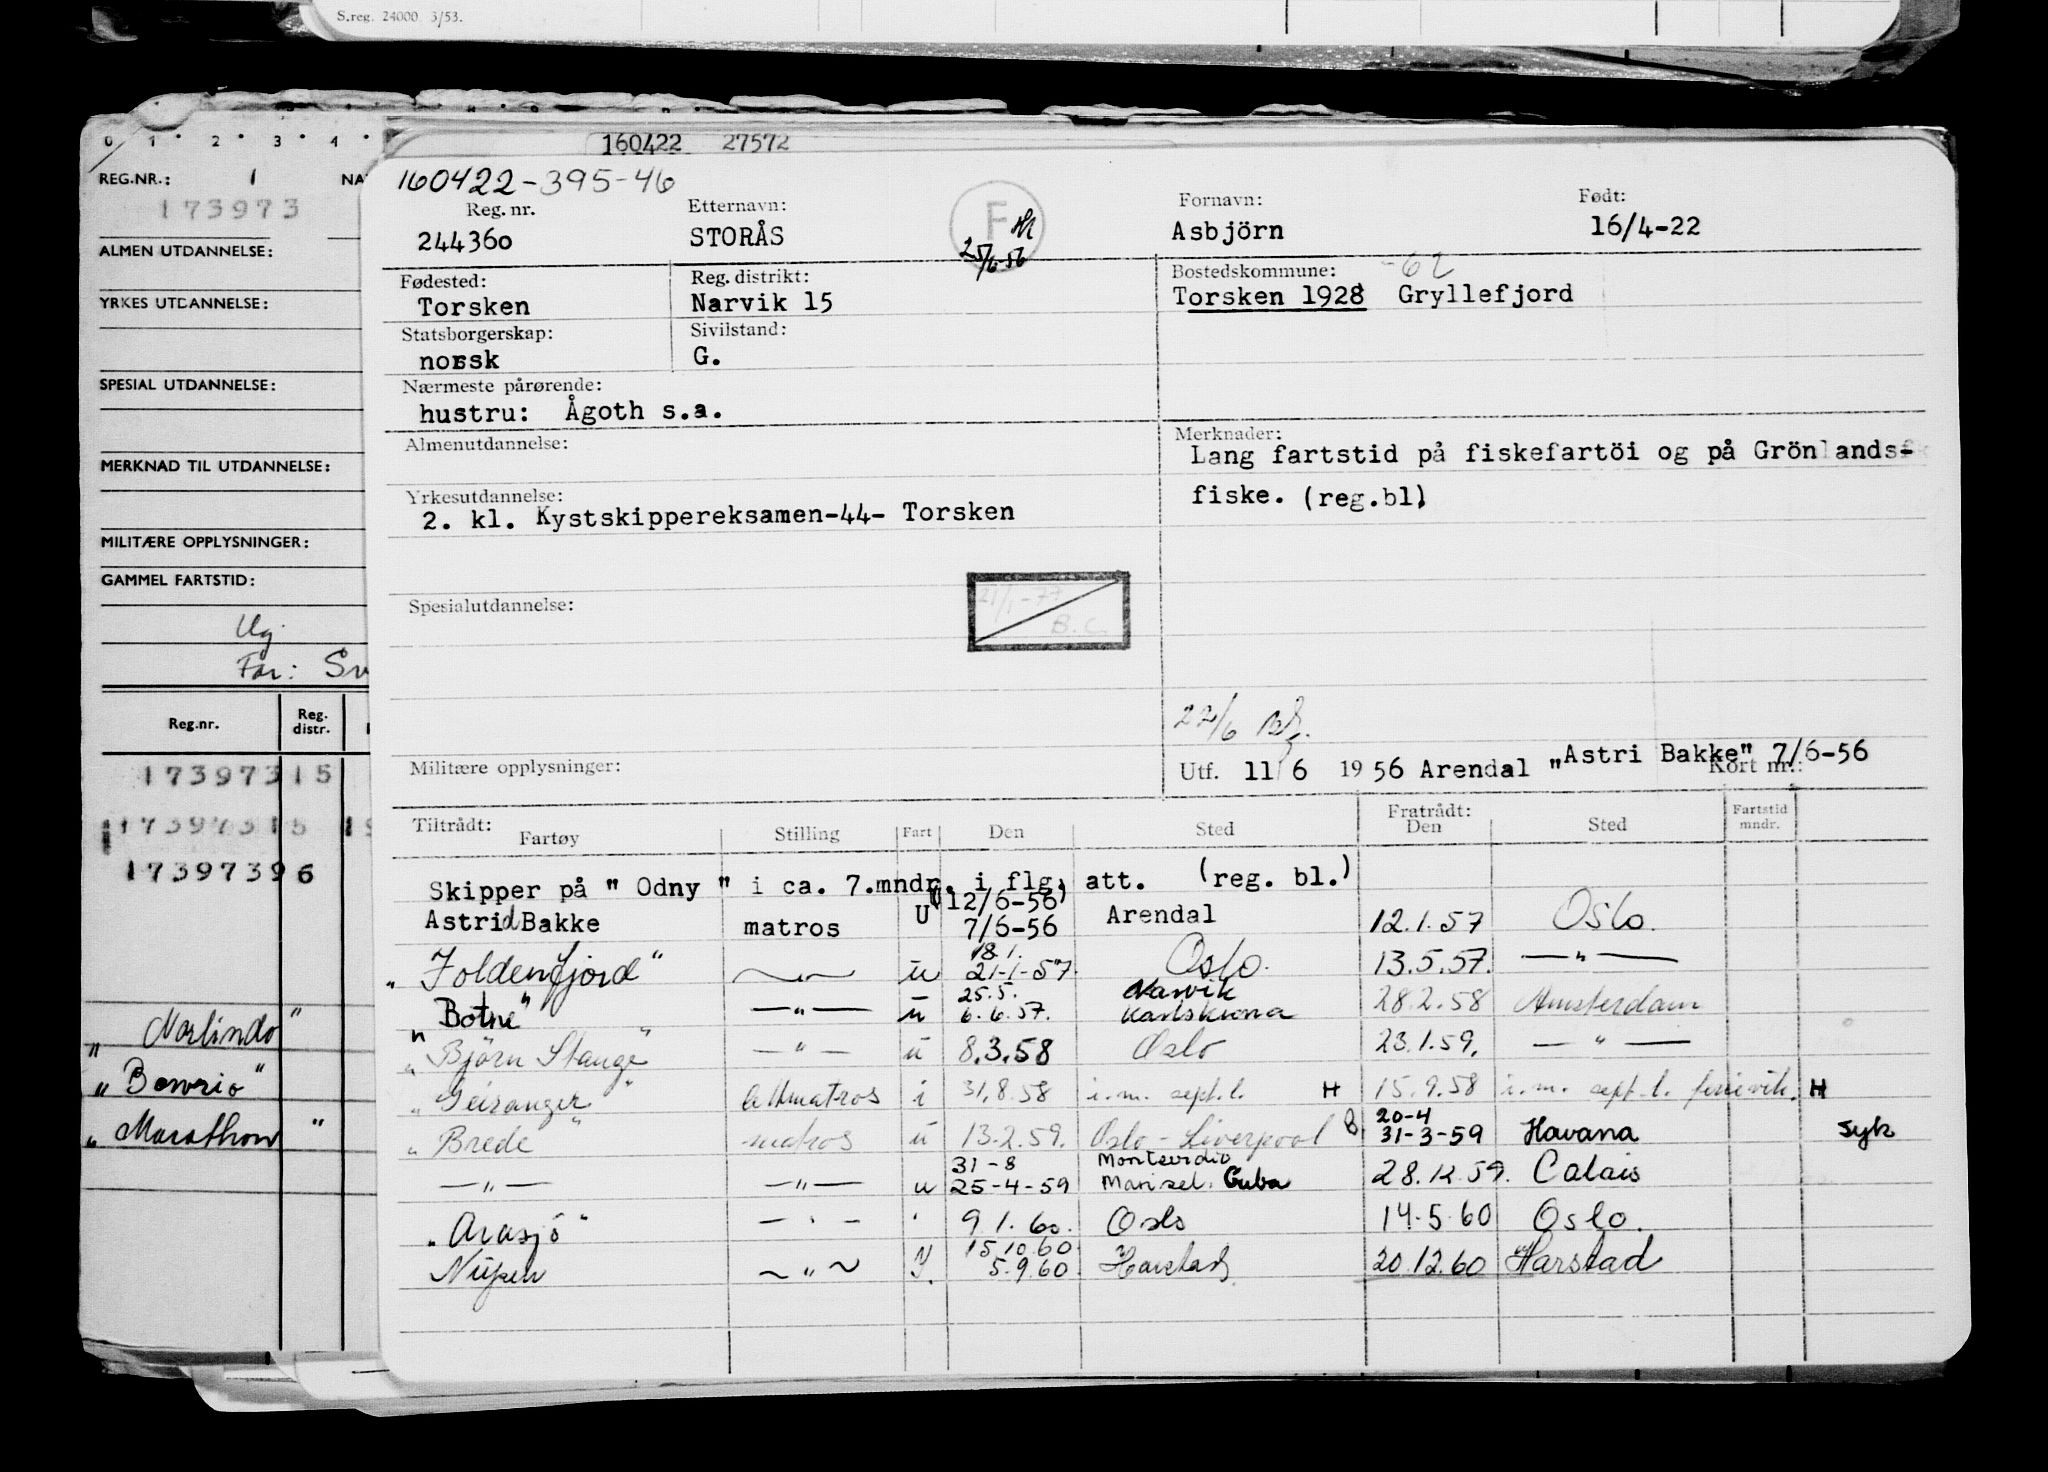 S.reg. 24000 3/53.
0 1 2 3 4
160422 27572
REG.NR.: 1 NA
173973
160422-395-46
Reg. nr. Etternavn: Fornavn: Født:
244360 STORÅS F 25/6-56 Asbjörn 16/4-22
ALMEN UTDANNELSE:
Fødested: Reg. distrikt: Bostedskommune: -62
Torsken Narvik 15 Torsken 1928 Gryllefjord
YRKES UTDANNELSE:
Statsborgerskap: Sivilstand:
norsk G.
SPESIAL UTDANNELSE:
Nærmeste pårørende:
hustru: Ågoth s.a.
Almenutdannelse: Merknader:
Lang fartstid på fiskefartöi og på Grönlands-
MERKNAD TIL UTDANNELSE:
Yrkesutdannelse: fiske. (reg.bl)
2. kl. Kystskippereksamen-44- Torsken
MILITÆRE OPPLYSNINGER:
GAMMEL FARTSTID:
Spesialutdannelse: 21/1-77 B.C.
Ug.
Far: Sv
Reg.nr. Reg. distr.
22/6
Militære opplysninger: Utf. 11/6 1956 Arendal "Astri Bakke" 7/6-56 Kort nr.:
173973 15
173973 15 19
173973 96
Tiltrådt: Fratrådt:
Fartøy Stilling Fart Den Sted Den Sted Fartstid mndr.
Skipper på " Odny " i ca. 7.mndr. i flg. att. (reg. bl.)
(12/6-56)
Astrid Bakke matros U 7/6-56 Arendal 12.1.57 Oslo.
18.1.
"Foldenfjord" —"— u 21-1-57 Oslo. 13.5.57. —"—
25.5. Narvik
"Botne" —"— u 6.6.57. Karlskrona 28.2.58 Amsterdam
"Björn Stange" —"— u 8.3.58 Oslo 23.1.59. —"—
"Geiranger" lettmatros i 31.8.58 i.m. sept.l. H 15.9.58 i.m. sept.l. ferievik. H
20-4
"Brede" matros u 13.2.59. Oslo - Liverpool B 31-3-59 Havana syk
31-8 Montevidio
—"— —"— u 25-4-59 Marisel. Cuba 28.12.59. Calais
"Arasjö" —"— " 9.1.60. Oslo 14.5.60 Oslo.
15.10.60
Nupen —"— 5.9.60 Harstad 20.12.60 Harstad
"Norlindo"
"Bowrio"
"Marathon"